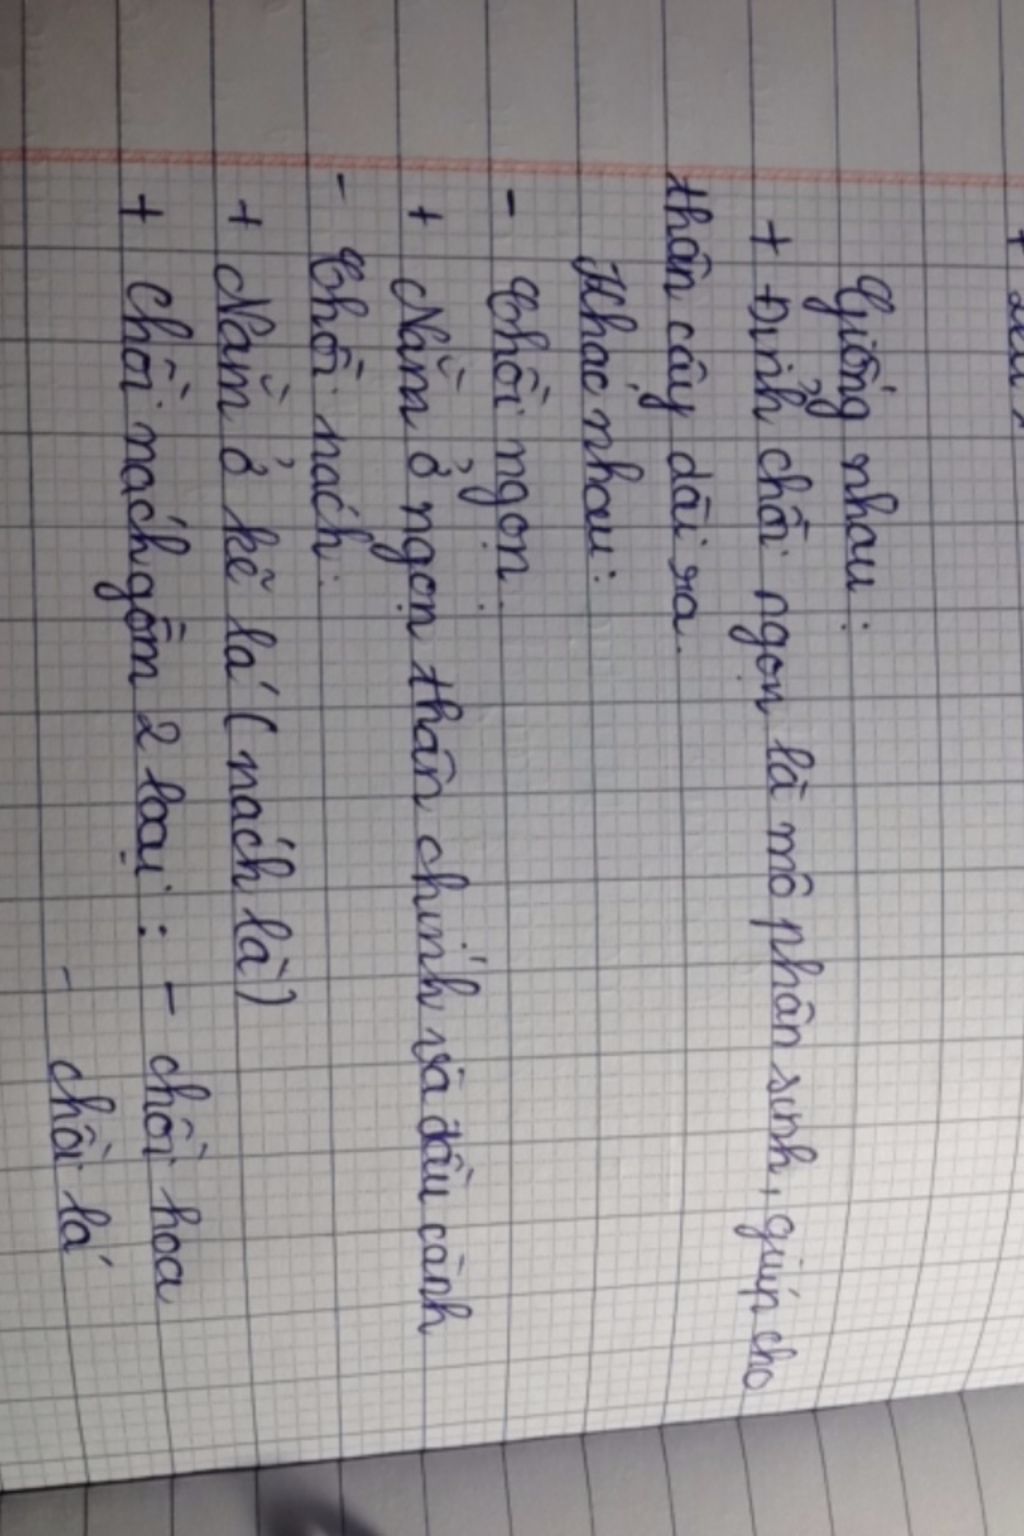 Giống nhau:
+ Đỉnh chồi ngọn là mô phân sinh, giúp cho
thân cây dài ra.
Khác nhau:
- Chồi ngọn
+ Nằm ở ngọn thân chính và đầu cành
- Chồi nách:
+ Nằm ở kẽ lá (nách là)
+ Chồi nách gồm 2 loại: - chồi hoa
- chồi lá